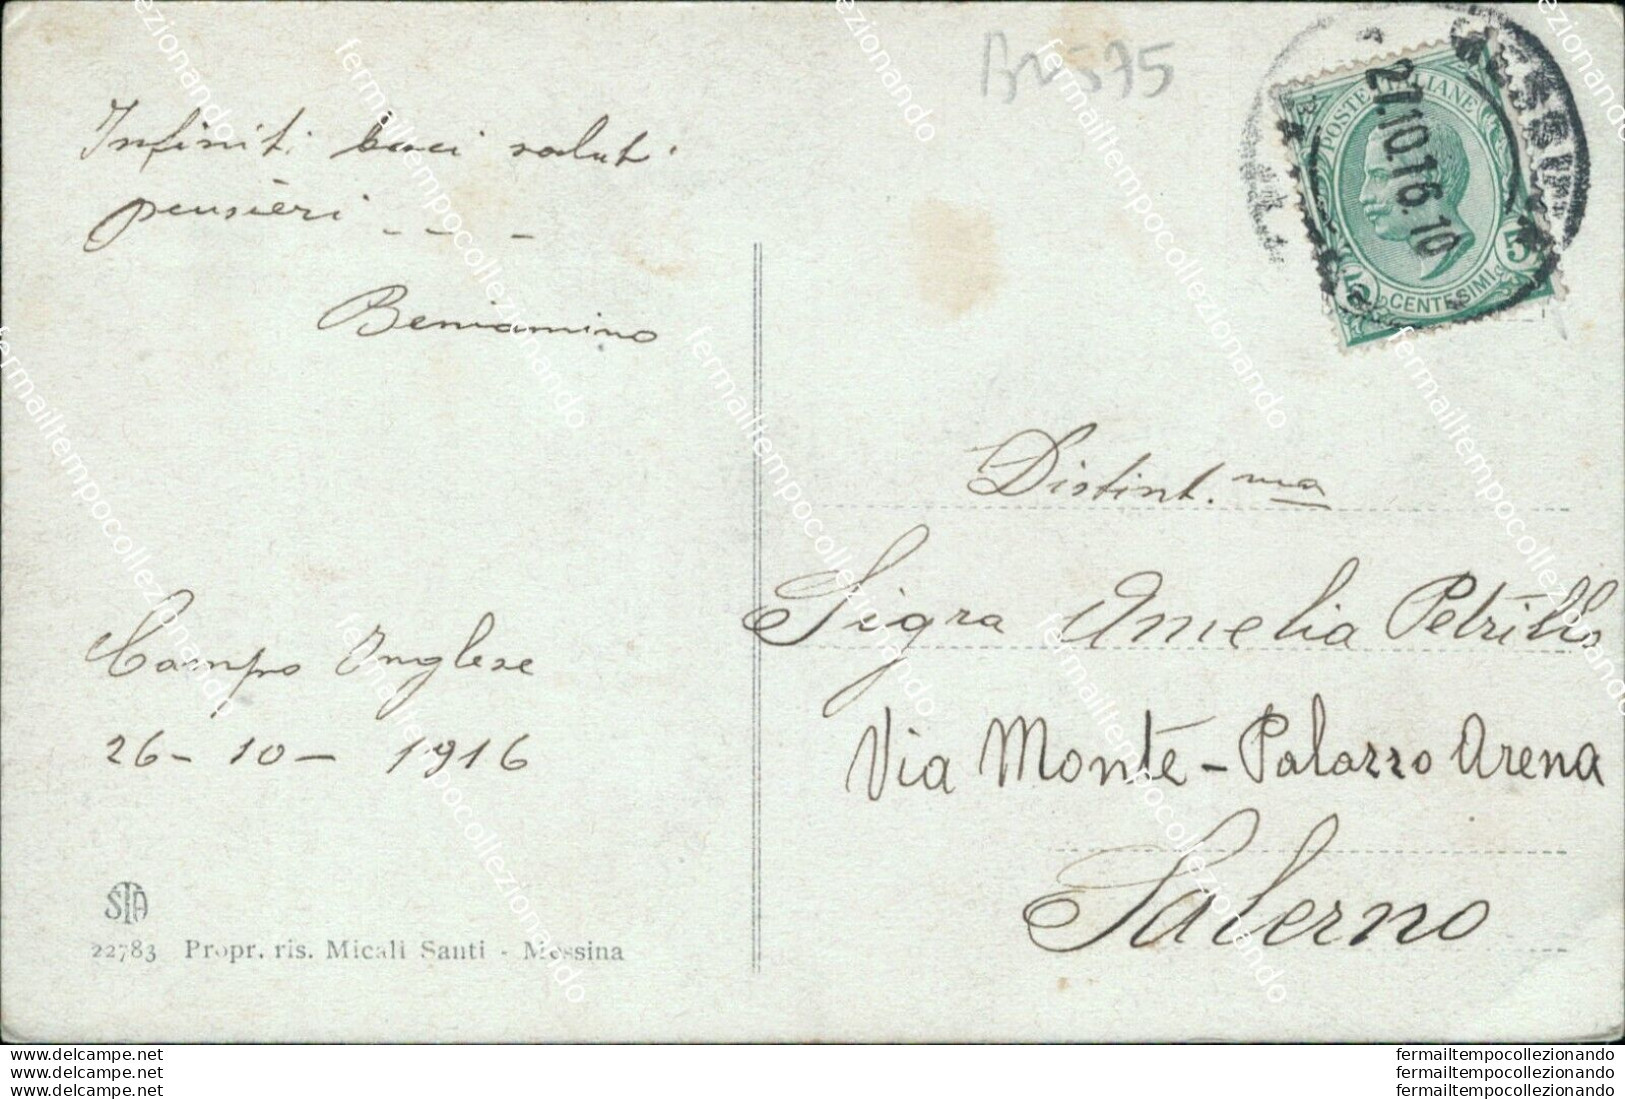 Bv575
Infiniti baci saluti
pensièri - - -
Beniamino
Campo Inglese
26 - 10 - 1916
STA
22783 Propr. ris. Micali Santi - Messina
POSTE ITALIANE
CENTESIMI
5
27.10.16.10
Distint.ma
Sigra Amelia Petrillo
Via Monte - Palazzo Arena
Salerno
www.delcampe.net
www.delcampe.net
www.delcampe.net
fermailtempocollezionando
fermailtempocollezionando
fermailtempocollezionando